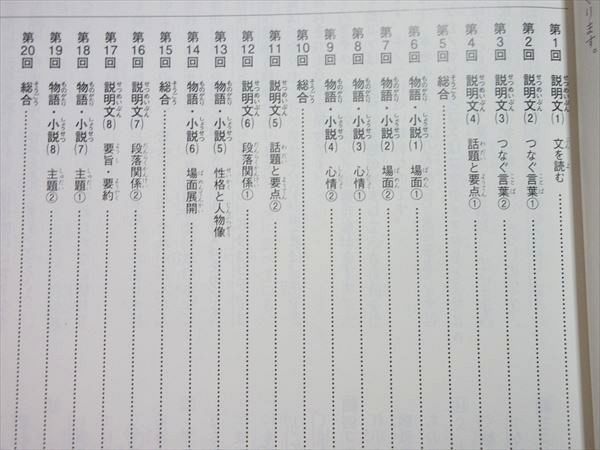 ります。
第1回 説明文(1) 文を読む
第2回 説明文(2) つなぐ言葉①
第3回 説明文(3) つなぐ言葉②
第4回 説明文(4) 話題と要点①
第5回 総合
第6回 物語・小説(1) 場面①
第7回 物語・小説(2) 場面②
第8回 物語・小説(3) 心情①
第9回 物語・小説(4) 心情②
第10回 総合
第11回 説明文(5) 話題と要点②
第12回 説明文(6) 段落関係①
第13回 物語・小説(5) 性格と人物像
第14回 物語・小説(6) 場面展開
第15回 総合
第16回 説明文(7) 段落関係②
第17回 説明文(8) 要旨・要約
第18回 物語・小説(7) 主題①
第19回 物語・小説(8) 主題②
第20回 総合